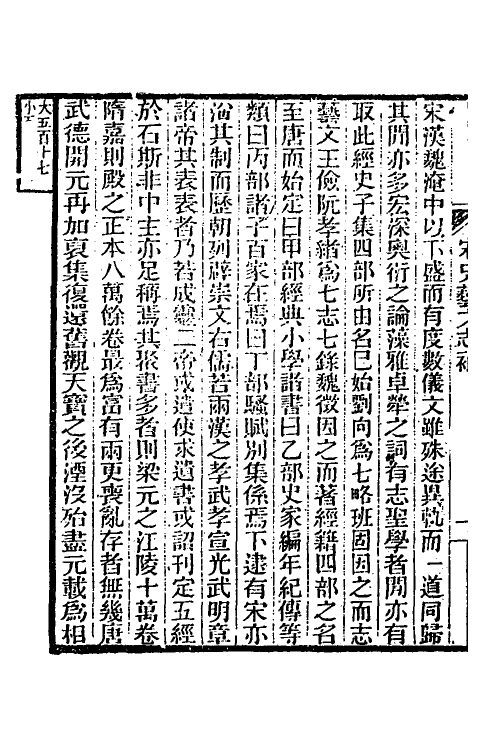 宋史藝文志補
宋漢魏淹中以下盛而有度數儀文雖殊途異軌而一道同歸
其閒亦多宏深奧衍之論藻雅卓犖之詞有志聖學者閒亦有
取此經史子集四部所由名巳始劉向爲七略班固因之而志
藝文王儉阮孝緒爲七志七錄魏徵因之而著經籍四部之名
至唐而始定曰甲部經典小學諧書曰乙部史家編年紀傳等
類曰丙部諸子百家在焉曰丁部騷賦別集係焉下逮有宋亦
沿其制而歷朝列辟崇文右儒若兩漢之孝武孝宣光武明章
諸帝其表表者乃若成靈二帝或遣使求遺書或詔刊定五經
於石斯非中主亦足稱焉其聚書多者則梁元之江陵十萬卷
隋嘉則殿之正本八萬餘卷最爲富有兩更喪亂存者無幾唐
武德開元再加裒集復還舊觀天寶之後湮沒殆盡元載爲相
大五百十七